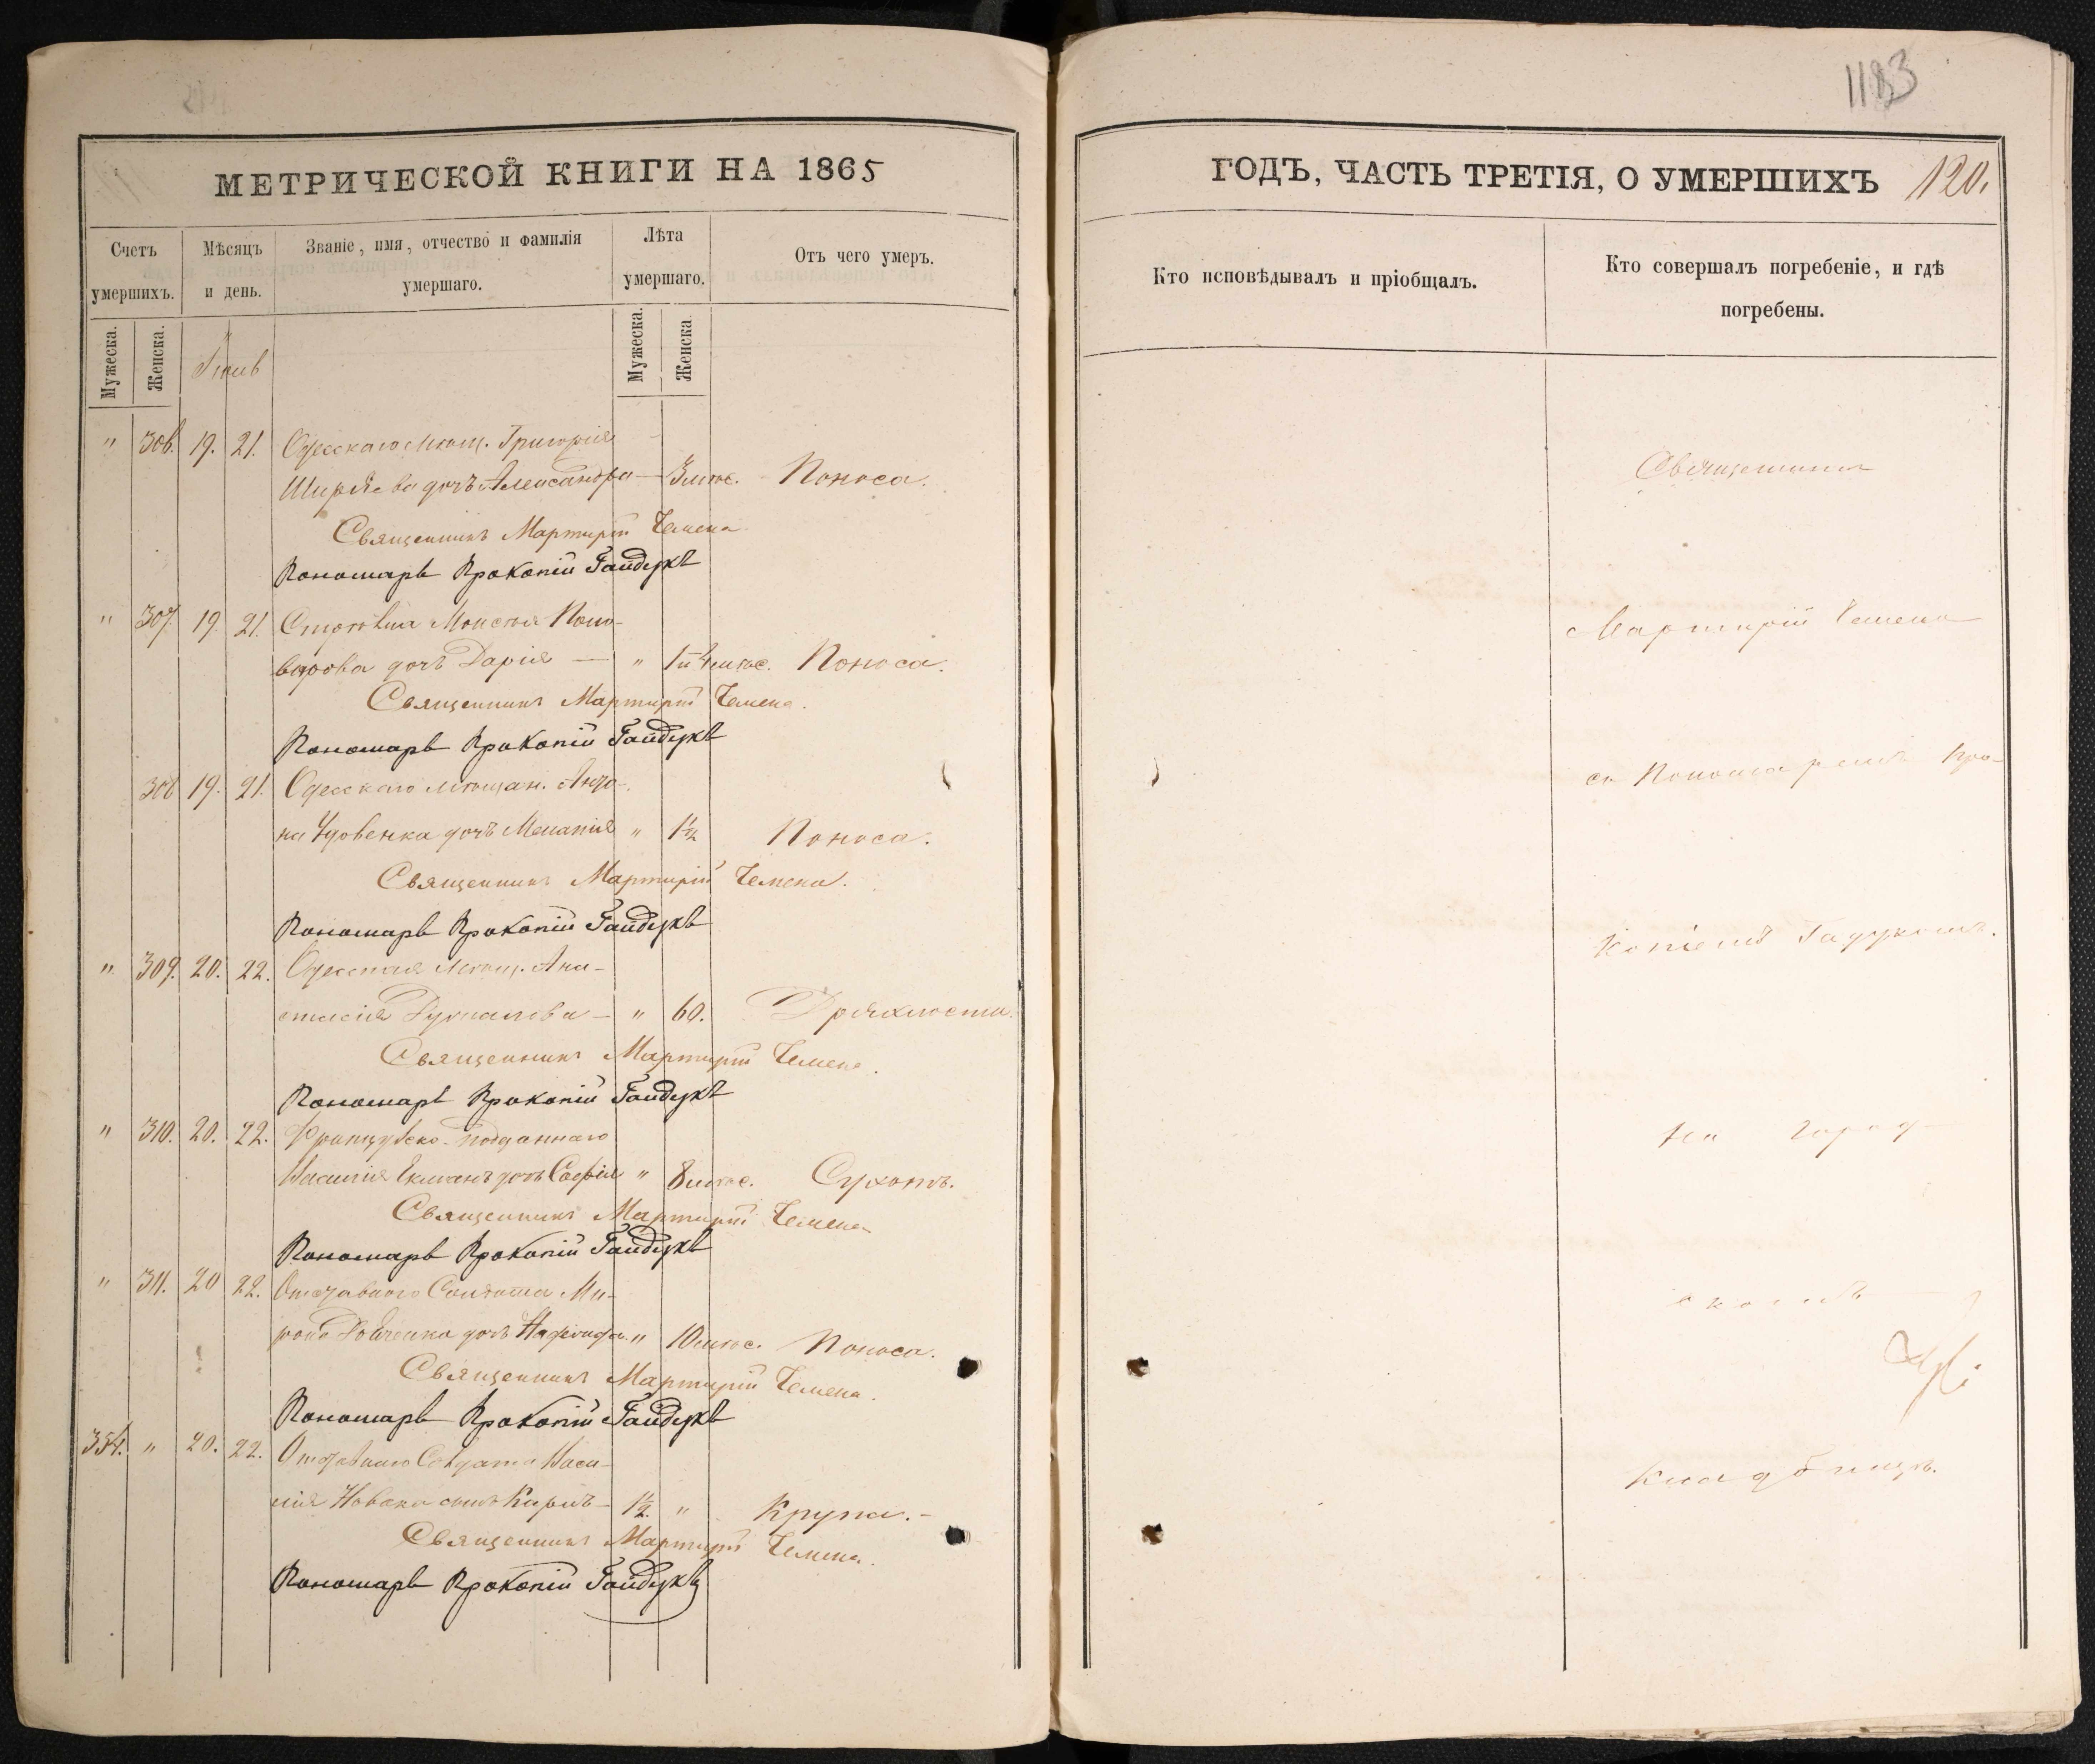 МЕТРИЧЕСКОЙ КНИГИ НА 1865
Счетъ умершихъ.
Мѣсяцъ и день.
Званіе, имя, отчество и фамилія умершаго.
Лѣта умершаго.
Отъ чего умеръ.
Мужеска.
Женска.
Мужеска.
Женска.
" 306. 19. 21. Одесскаго мѣщ. Григорія
Ширяева дочь Александра — 3 мѣс. Поноса.
Священникъ Мартирій Чемена
Пономарь Прокопій Гайдукъ
" 307. 19. 21. Моисея Поно-
дочь Дарія — " 1 и 4 мѣс. Поноса.
Священникъ Мартирій Чемена.
Пономарь Прокопій Гайдукъ
308 19. 21. Одесскаго мѣщан. Анто-
на Удовенка дочь Меланія " 1½ Поноса.
Священникъ Мартирій Чемена.
Пономарь Прокопій Гайдукъ
" 309. 20. 22. Одесская мѣщ. Ана-
стасія — " 60. Дряхлости.
Священникъ Мартирій Чемена.
Пономарь Прокопій Гайдукъ
" 310. 20. 22. Французско-подданнаго
Василія дочь Софія " 8 мѣс. Сухотъ.
Священникъ Мартирій Чемена
Пономарь Прокопій Гайдукъ
" 311. 20 22. Отставного Солдата Ми-
рона дочь " 10 мѣс. Поноса.
Священникъ Мартирій Чемена.
Пономарь Прокопій Гайдукъ
354. " 20. 22. Отставнаго Солдата Васи-
лія Новака сынъ Карпъ — 1½. " Крупа. -
Священникъ Мартирій Чемена.
Пономарь Прокопій Гайдукъ
1183
ГОДЪ, ЧАСТЬ ТРЕТІЯ, О УМЕРШИХЪ 120.
Кто исповѣдывалъ и пріобщалъ.
Кто совершалъ погребеніе, и гдѣ
погребены.
Священникъ
Мартирій Чемена
съ Пономаремъ Про-
копіемъ Гадукомъ.
на город-
скомъ
Кладбищѣ.